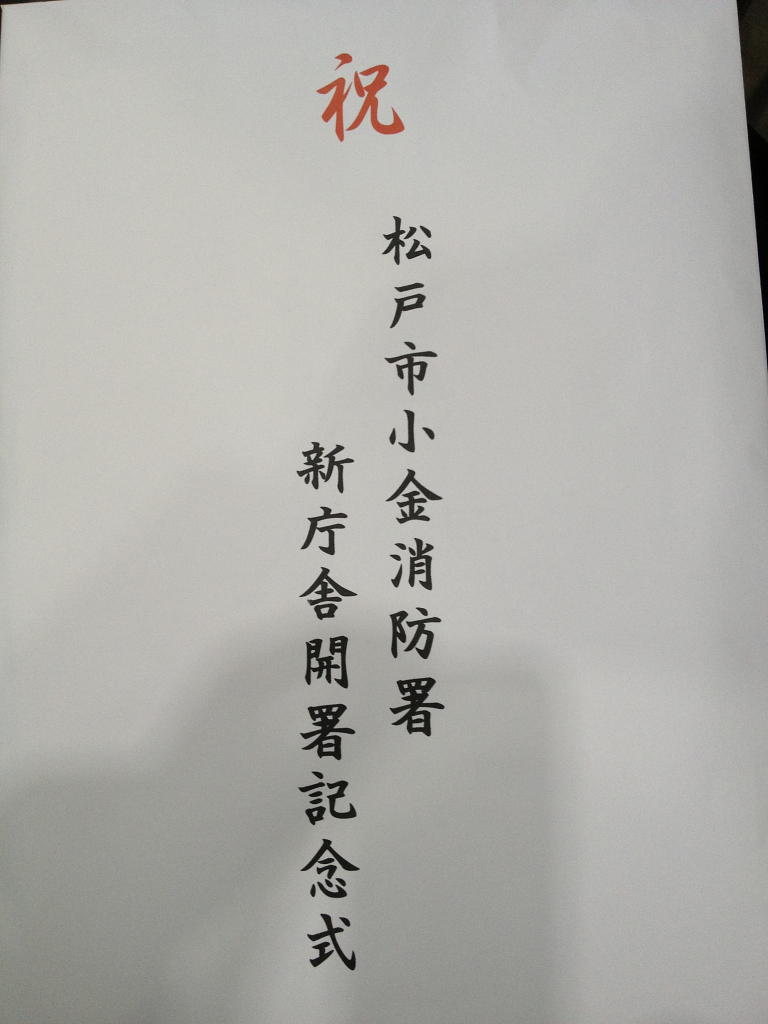 祝
松戸市小金消防署
新庁舎開署記念式